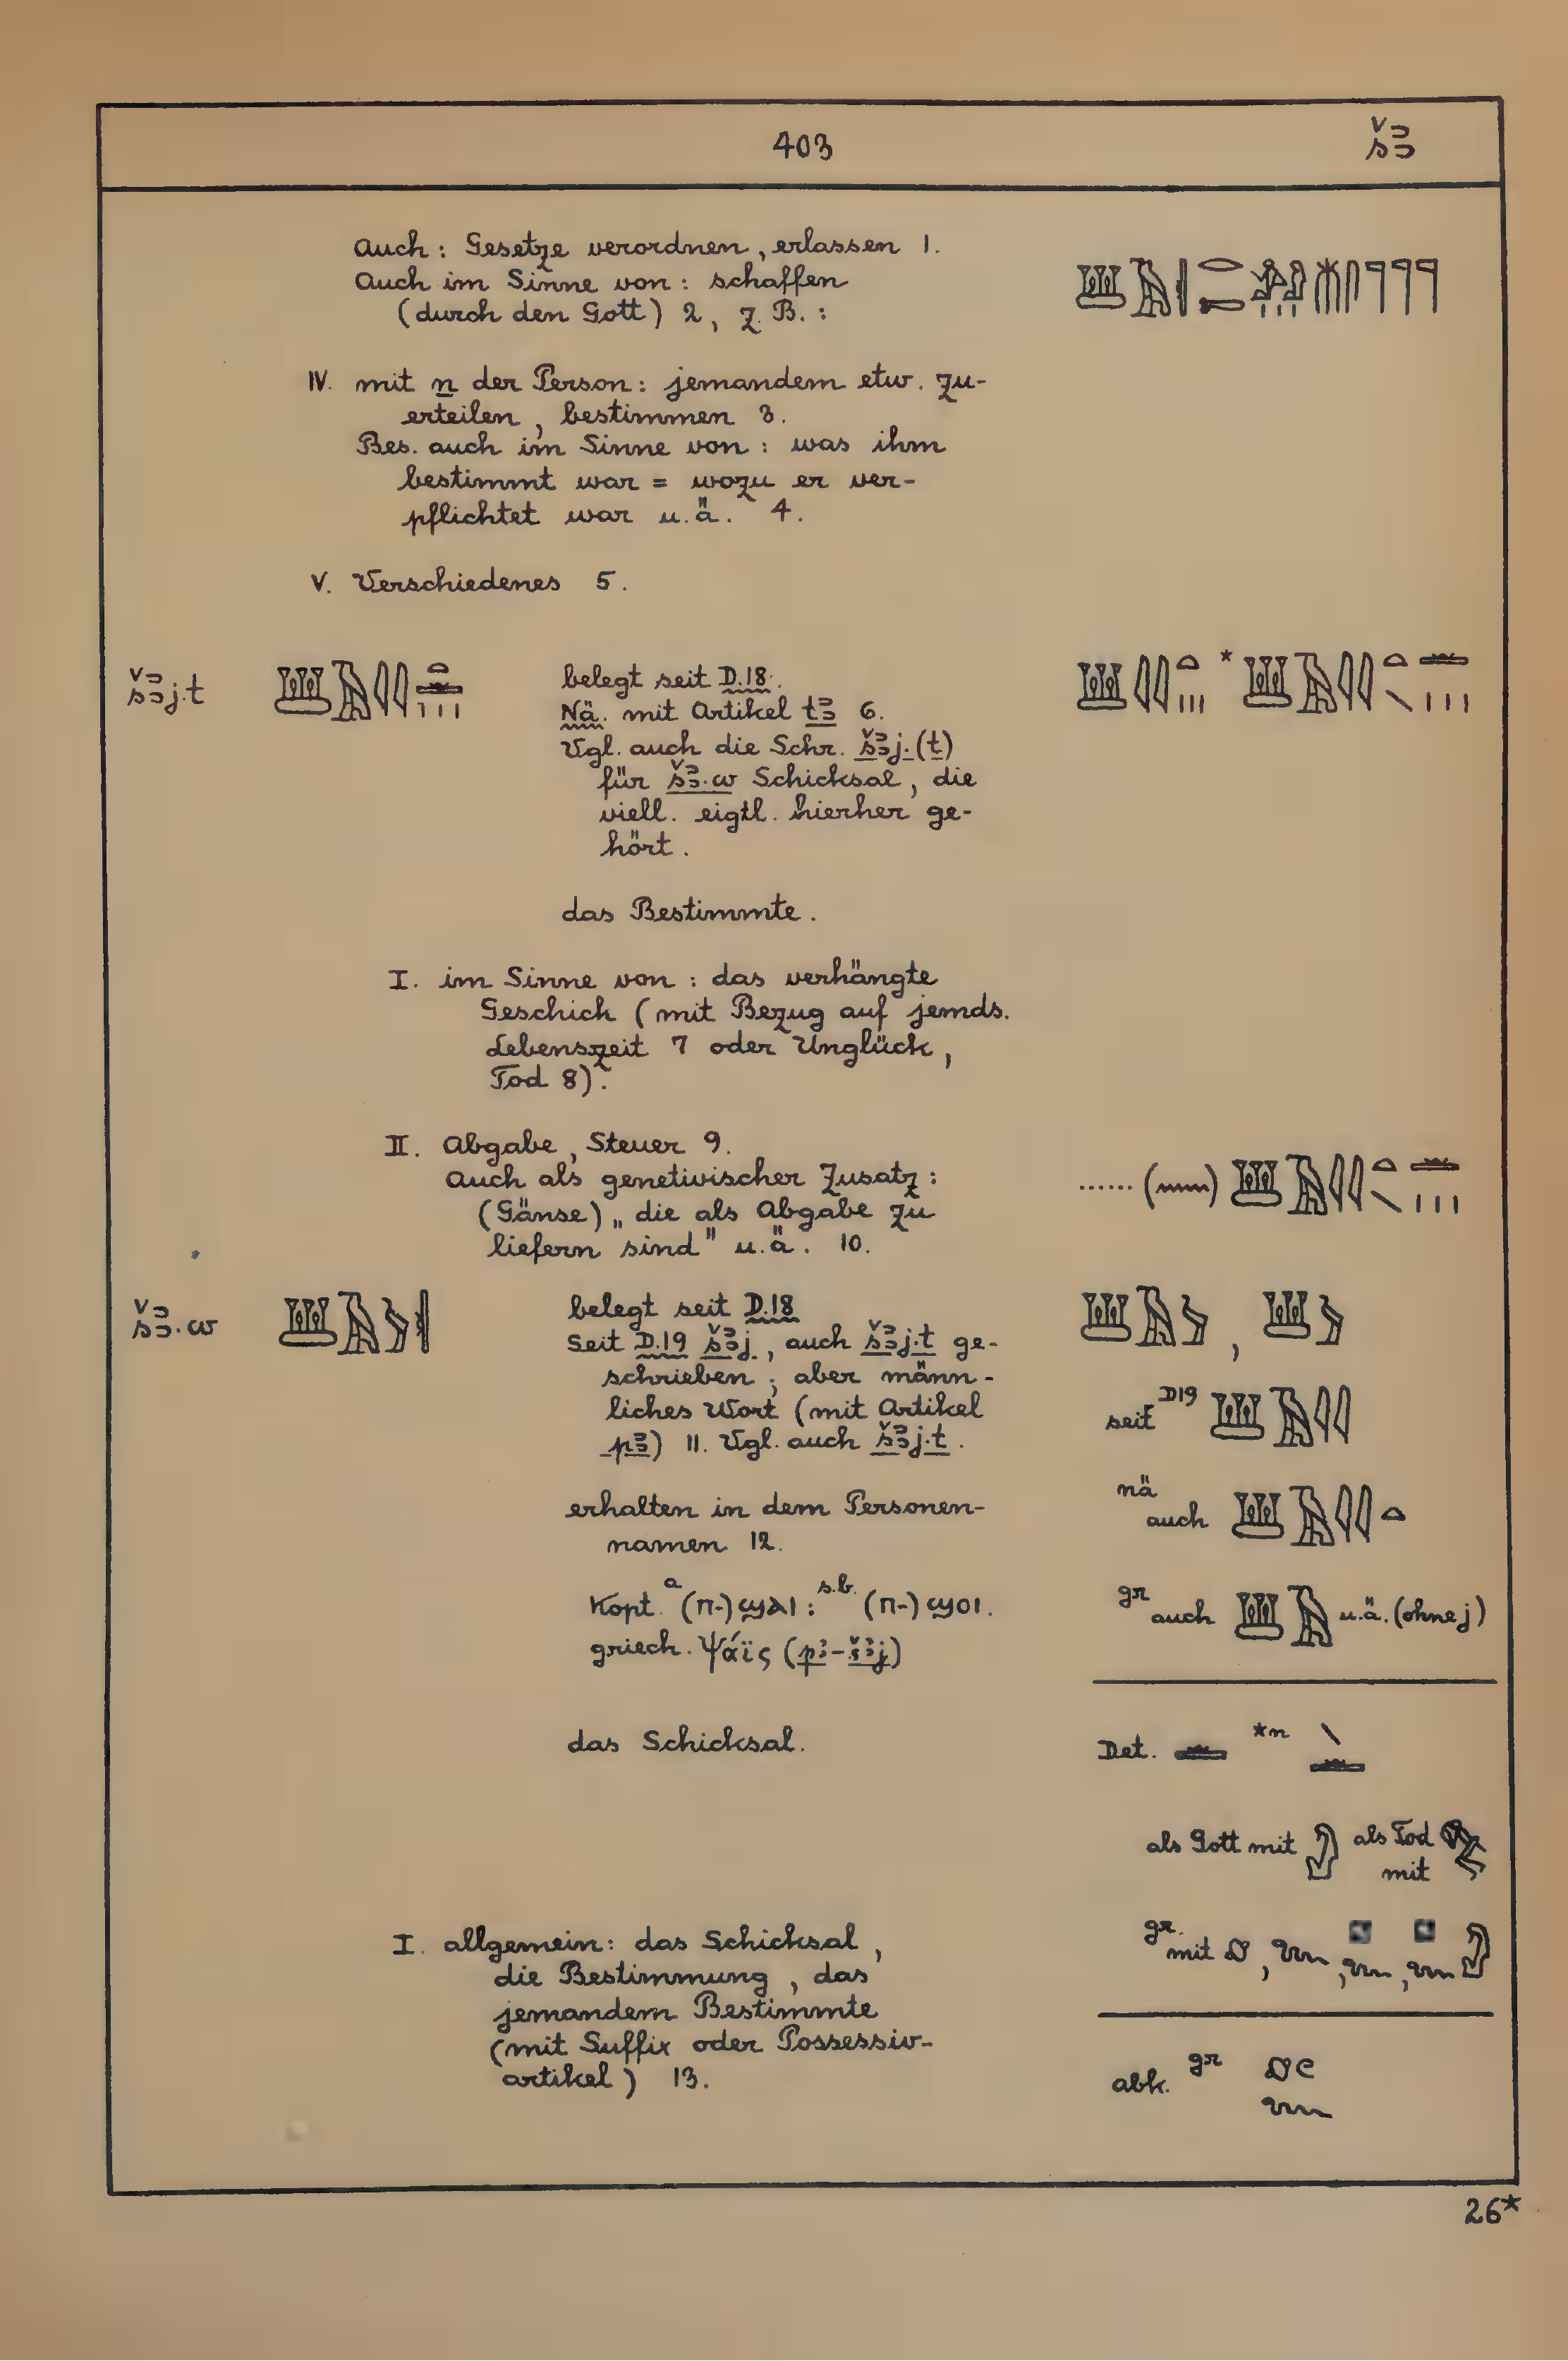 403
šꜣ
Auch: Gesetze verordnen, erlassen 1.
Auch im Sinne von: schaffen
(durch den Gott) 2, z. B.:
IV. mit n der Person: jemandem etw. zu-
erteilen, bestimmen 3.
Bes. auch im Sinne von: was ihm
bestimmt war = wozu er ver-
pflichtet war u.ä. 4.
V. Verschiedenes 5.
šꜣj.t
belegt seit D.18.
Nä. mit Artikel tꜣ 6.
Vgl. auch die Schr. šꜣj.(t)
für šꜣ.w Schicksal, die
viell. eigtl. hierher ge-
hört.
*
das Bestimmte.
I. im Sinne von: das verhängte
Geschick (mit Bezug auf jemds.
Lebenszeit 7 oder Unglück,
Tod 8).
II. Abgabe, Steuer 9.
Auch als genetivischer Zusatz:
(Gänse) „die als Abgabe zu
liefern sind" u.ä. 10.
šꜣ.w
belegt seit D.18
Seit D.19 šꜣj., auch šꜣj.t ge-
schrieben; aber männ-
liches Wort (mit Artikel
pꜣ) 11. Vgl. auch šꜣj.t.
seit D19
erhalten in dem Personen-
namen 12.
nä auch
Kopt. a (ⲡ-)ϣⲁⲓ: s.b. (ⲡ-)ϣⲟⲓ.
griech. Ψάϊς (pꜣ-šꜣj)
gr auch u.ä. (ohne j)
das Schicksal.
Det. *n
als Gott mit als Tod
mit
gr. mit
I. allgemein: das Schicksal,
die Bestimmung, das
jemandem Bestimmte
(mit Suffix oder Possessiv-
artikel) 13.
abk. gr
26*